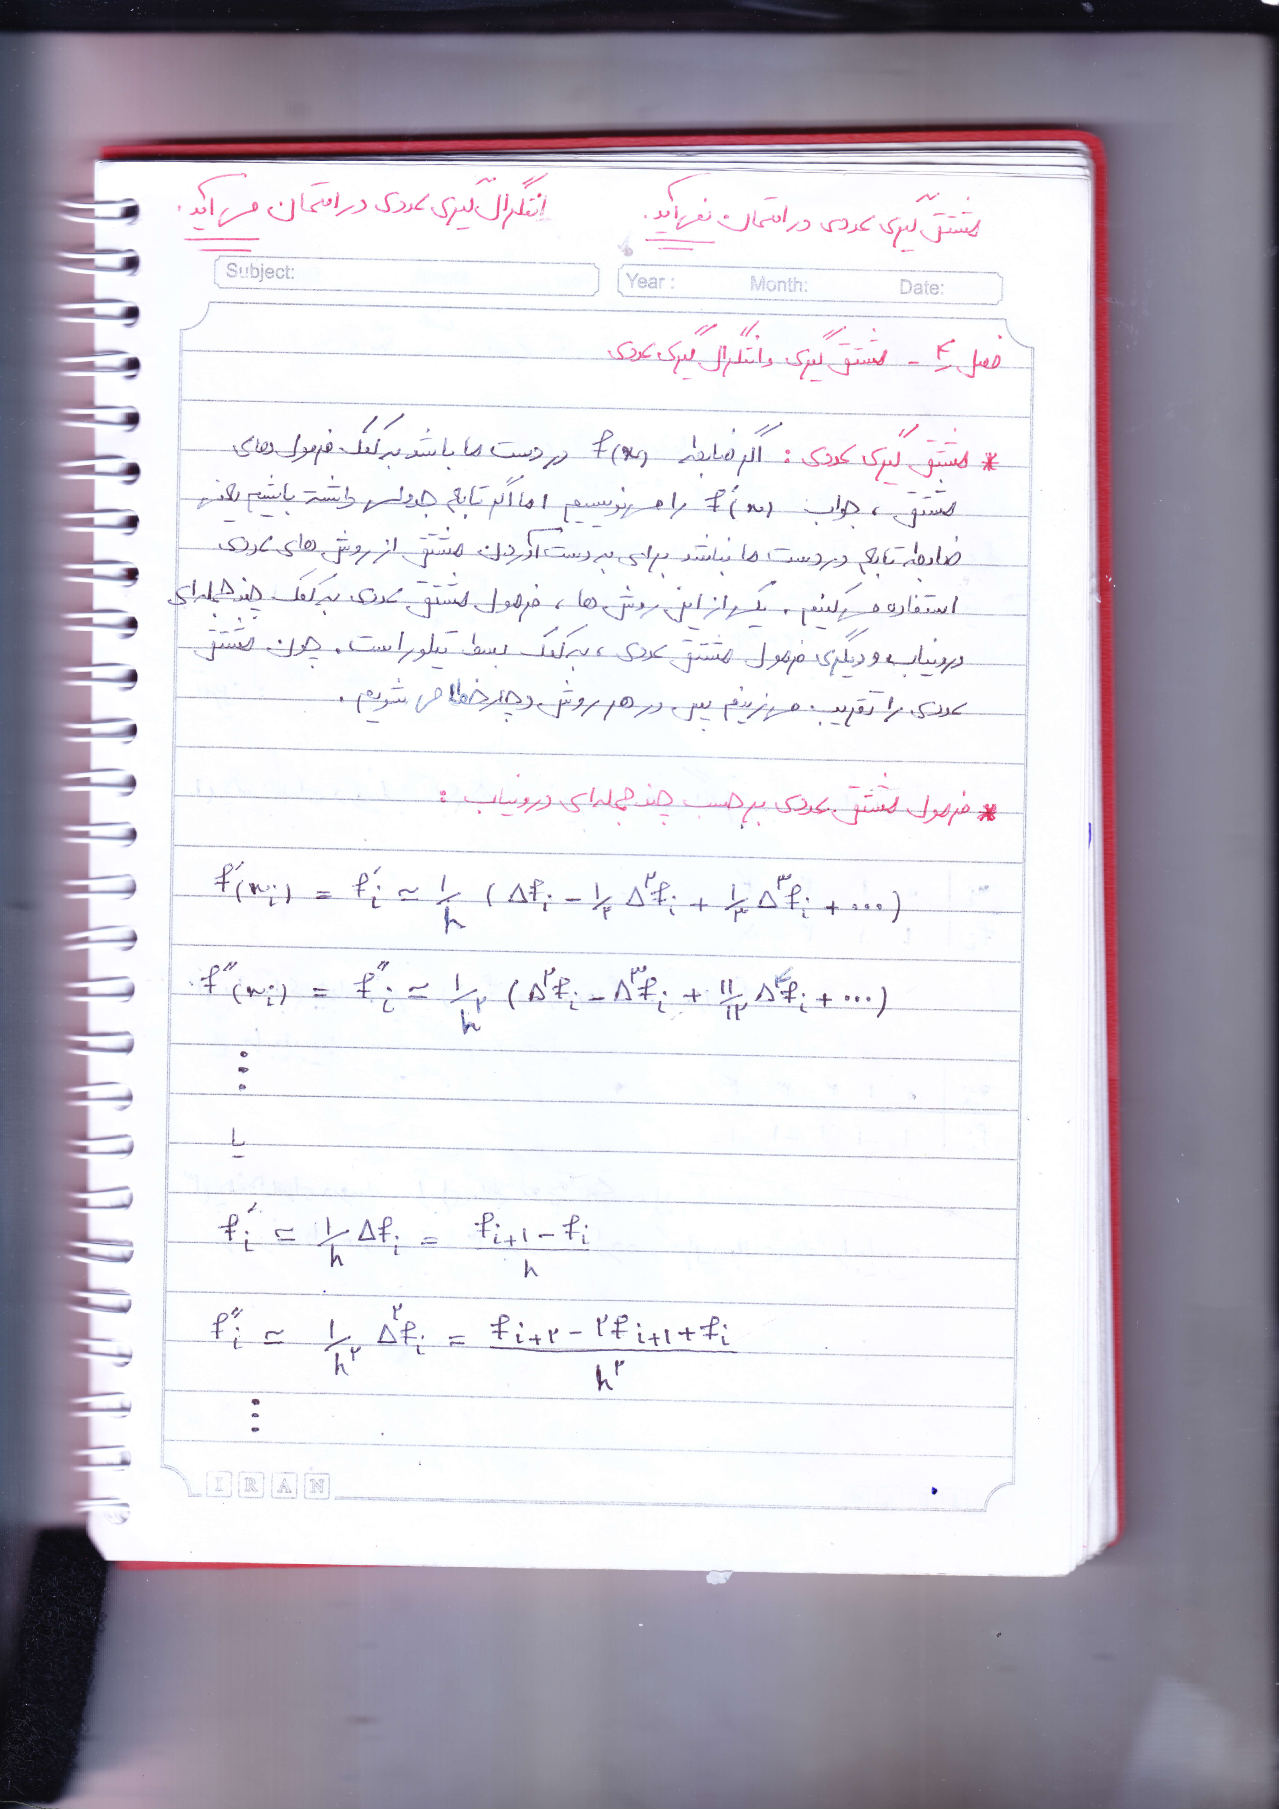 مشتق گیری عددی در امتحان نمی آید.
انتگرال گیری عددی در امتحان می آید.
Subject:
Year : Month: Date:
فصل ۴ - مشتق گیری و انتگرال گیری عددی
* مشتق گیری عددی : اگر ضابطه f(x) در دست ما باشد به کمک فرمول های
مشتق ، جواب f′(x) را می نویسیم اما اگر تابع جدولی داشته باشیم یعنی
ضابطه تابع در دست ما نباشد برای به دست آوردن مشتق از روش های عددی
استفاده می کنیم . یکی از این روش ها ، فرمول مشتق عددی به کمک چند جمله ای
درونیاب و دیگری فرمول مشتق عددی ، به کمک بسط تیلور است . چون مشتق
عددی را تقریب می زنیم پس در هر روش دچار خطا می شویم .
* فرمول مشتق عددی بر حسب چند جمله ای درونیاب :
f′(xᵢ) = f′ᵢ ≃ ۱/h (Δfᵢ - ۱/۲ Δ²fᵢ + ۱/۳ Δ³fᵢ + ...)
f″(xᵢ) = f″ᵢ ≃ ۱/h² (Δ²fᵢ - Δ³fᵢ + ۱۱/۱۲ Δ⁴fᵢ + ...)
⋮
یا
f′ᵢ ≃ ۱/h Δfᵢ = (fᵢ₊۱ - fᵢ)/h
f″ᵢ ≃ ۱/h² Δ²fᵢ = (fᵢ₊۲ - ۲fᵢ₊۱ + fᵢ)/h²
⋮
IRAN